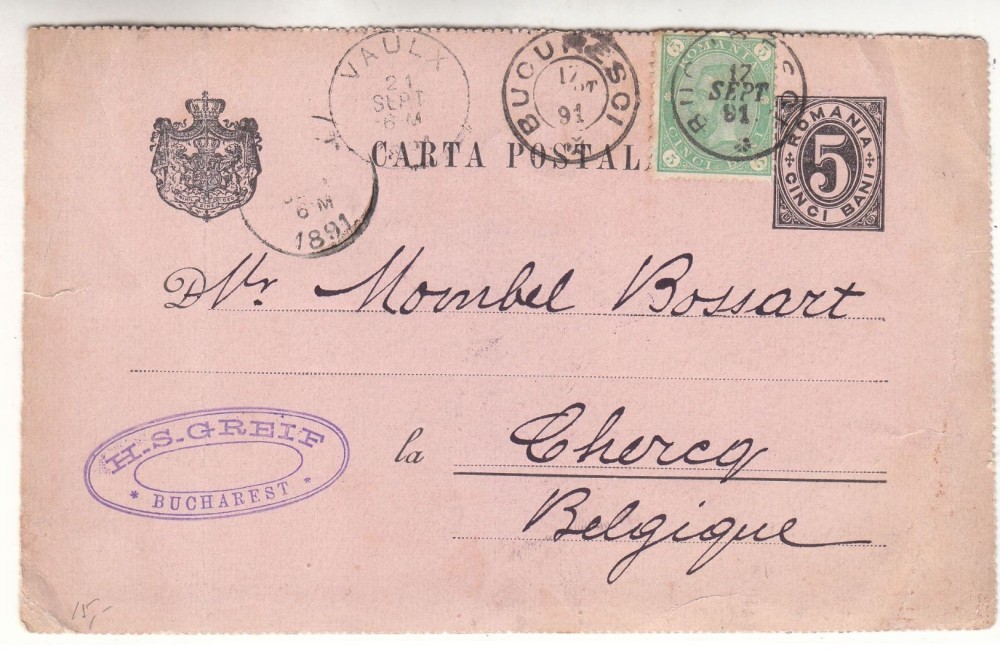 VAULX
21
SEPT
6 M
BUCURESCI
17
91
5 ROMANIA 5
5 CINCI 5
17
SEPT
91
CARTA POSTAL
ROMANIA
5
CINCI BANI
6 M
1891
D Mr Mombel Bossart
H. S. GREIF
* BUCHAREST *
la Chercq
Belgique
15,-